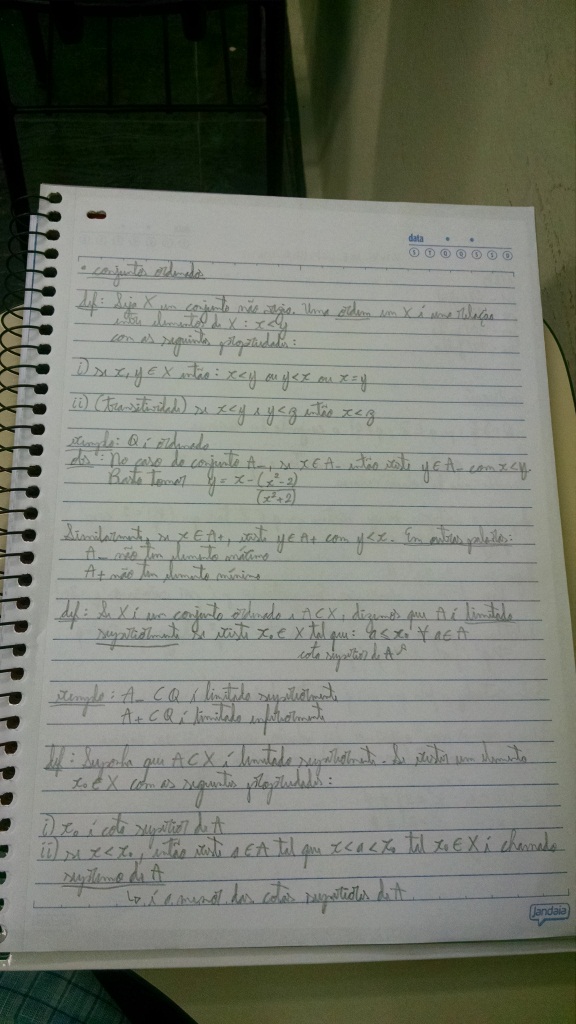 data
S T Q Q S S D
• conjuntos ordenados
def: Seja X um conjunto não vazio. Uma ordem em X é uma relação
entre elementos de X: x<y
com as seguintes propriedades:
i) se x, y ∈ X então: x<y ou y<x ou x=y
ii) (transitividade) se x<y e y<z então x<z
exemplo: Q é ordenado
obs: No caso do conjunto A₋, se x ∈ A₋ então existe y ∈ A₋ com x<y.
Basta tomar y = x - (x²-2)
(x²+2)
Similarmente, se x ∈ A₊, existe y ∈ A₊ com y<x. Em outras palavras:
A₋ não tem elemento máximo
A₊ não tem elemento mínimo
def: Se X é um conjunto ordenado e A⊂X, dizemos que A é limitado
superiormente se existe x₀ ∈ X tal que: a ≤ x₀ ∀ a ∈ A
cota superior de A
exemplo: A₋ ⊂ Q é limitado superiormente
A₊ ⊂ Q é limitado inferiormente
def: Suponha que A⊂X é limitado superiormente. Se existir um elemento
x₀ ∈ X com as seguintes propriedades:
i) x₀ é cota superior de A
ii) se x<x₀, então existe a ∈ A tal que x<a<x₀ tal x₀ ∈ X é chamado
supremo de A
↳ é a menor das cotas superiores de A
jandaia